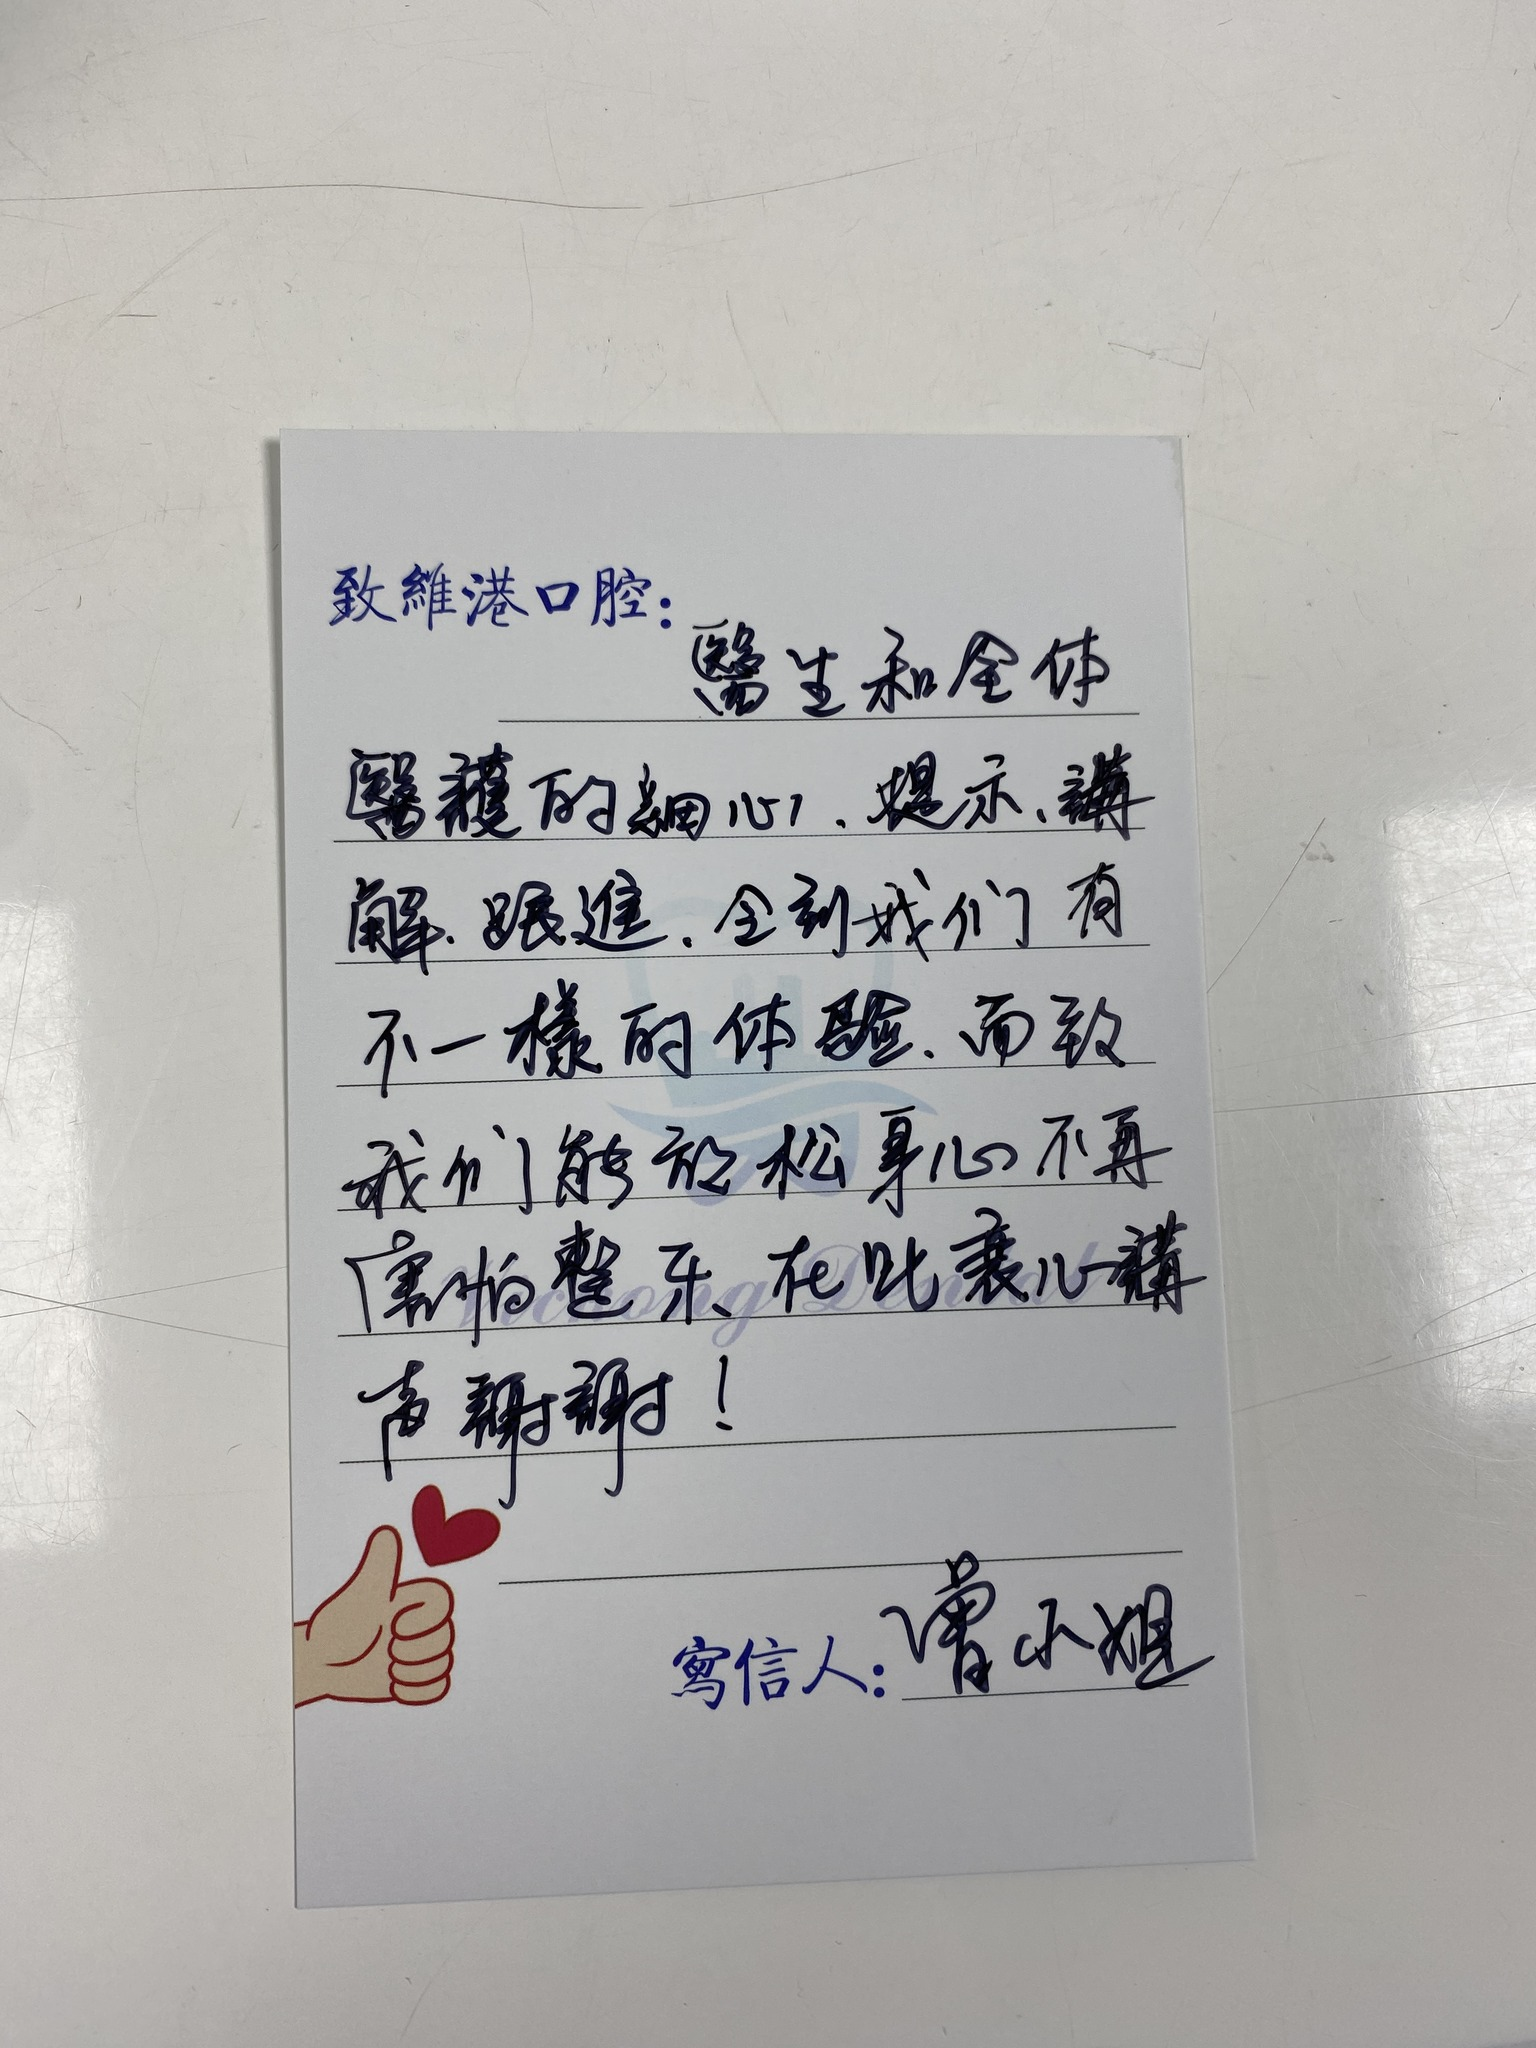 致維港口腔:
醫生和全体
醫護的細心、提示、講
解、跟進、令到我们有
不一樣的体驗、而致
我们能放松身心不再
害怕整牙、在此衷心講
声謝謝!
寫信人: 曾小姐